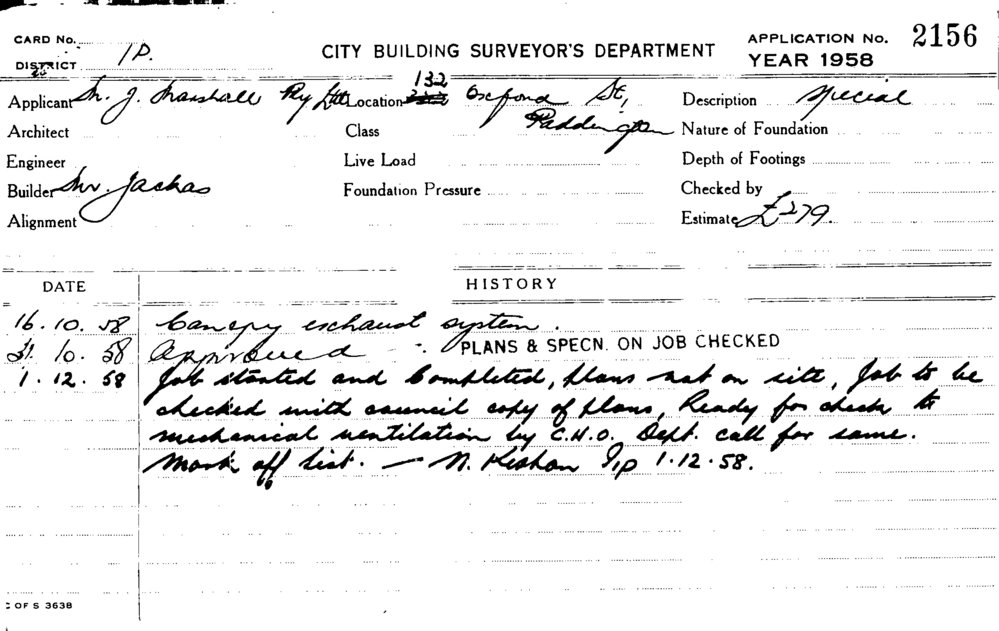 CARD No.
DISTRICT 1P.
CITY BUILDING SURVEYOR'S DEPARTMENT
APPLICATION No. 2156
YEAR 1958
Applicant M. J. Marshall Pty Ltd Location 132 Oxford St, Paddington Description Special
Architect Class Nature of Foundation
Engineer Live Load Depth of Footings
Builder Mr. Jackas Foundation Pressure Checked by
Alignment Estimate £279.
DATE HISTORY
16. 10. 58 Canopy exhaust system.
21. 10. 58 Approved PLANS & SPECN. ON JOB CHECKED
1. 12. 58 Job started and Completed, plans not on site, Job to be
checked with council copy of plans, Ready for check to
mechanical ventilation by C.H.O. Dept. call for same.
Mark off list. — N. 1.12.58.
OF S 3638